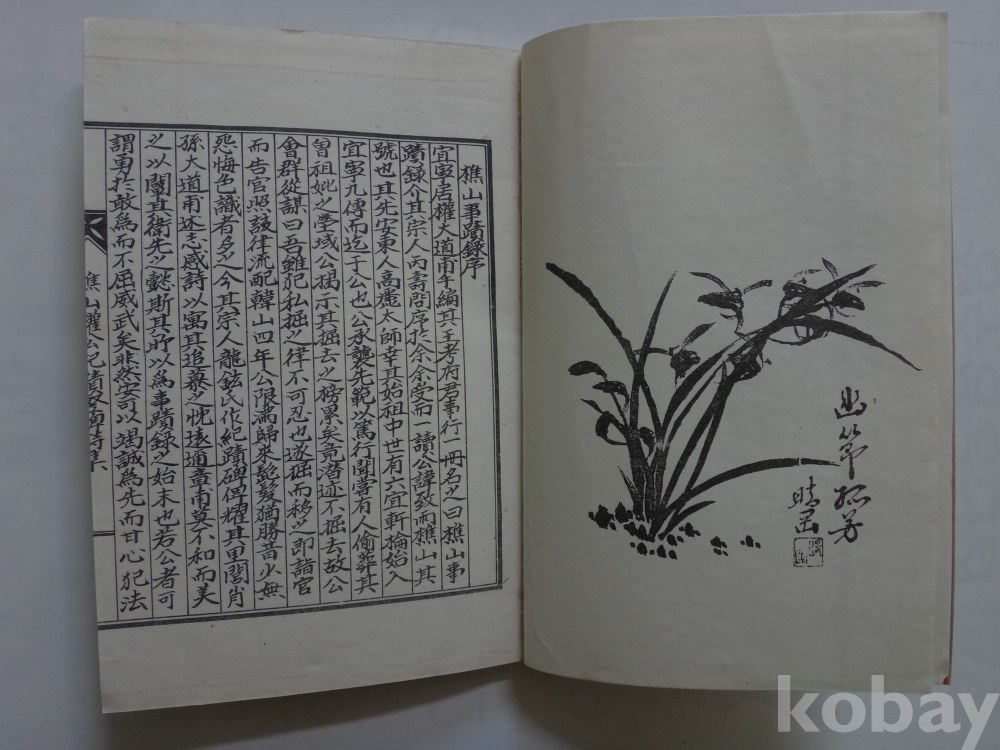 幽節孤芳
樵山事蹟錄序
宜寧居權大道甫年編其王考府君事行一冊名之曰樵山事
蹟錄介其宗人丙壽問序於余余受而一讀公諱致炳樵山其
號也其先安東人高麗太師幸其始祖中世有六宜軒掄始入
宜寧九傳而迄于公也公承襲先範以篤行聞嘗有人偷葬其
曾祖妣之塋域公揭示其掘去之榜累矣竟潛迹不掘去故公
會群從謀曰吾雖犯私掘之律不可忍也遂掘而移之即詣官
而告官照該律流配韓山四年公限滿歸來髭髮猶勝昔少無
怨悔色識者多之今其宗人龍鉉氏作紀蹟碑俾耀其里閭肖
孫大道甫述志感詩以寓其追慕之忱遠邇章甫莫不和而美
之以闡其衛先之懿斯其所以為事蹟錄之始末也若公者可
謂勇於敢為而不屈威武矣非然安可以竭誠為先而甘心犯法
樵山權公紀蹟
kobay